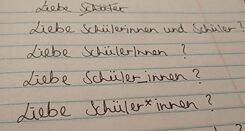 Liebe Schüler
Liebe Schülerinnen und Schüler?
Liebe SchülerInnen ?
Liebe Schüler_innen ?
Liebe Schüler*innen ?